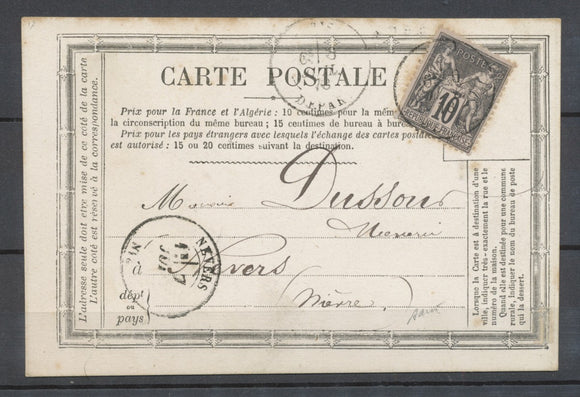 CARTE POSTALE
DEPART
POSTES
10
Prix pour la France et l'Algérie : 10 centimes pour la même
la circonscription du même bureau ; 15 centimes de bureau à bur
Prix pour les pays étrangers avec lesquels l'échange des cartes postale
est autorisé : 15 ou 20 centimes suivant la destination.
Dussour
à Nevers
Nièvre
dépt
ou
pays
NEVERS
L'adresse seule doit être mise de ce côté de la carte.
L'autre côté est réservé à la correspondance.
Lorsque la Carte est à destination d'une
ville, indiquer très-exactement la rue et le
numéro de la maison.
Quand elle est destinée pour une commune
rurale, indiquer le nom du bureau de poste
qui la dessert.